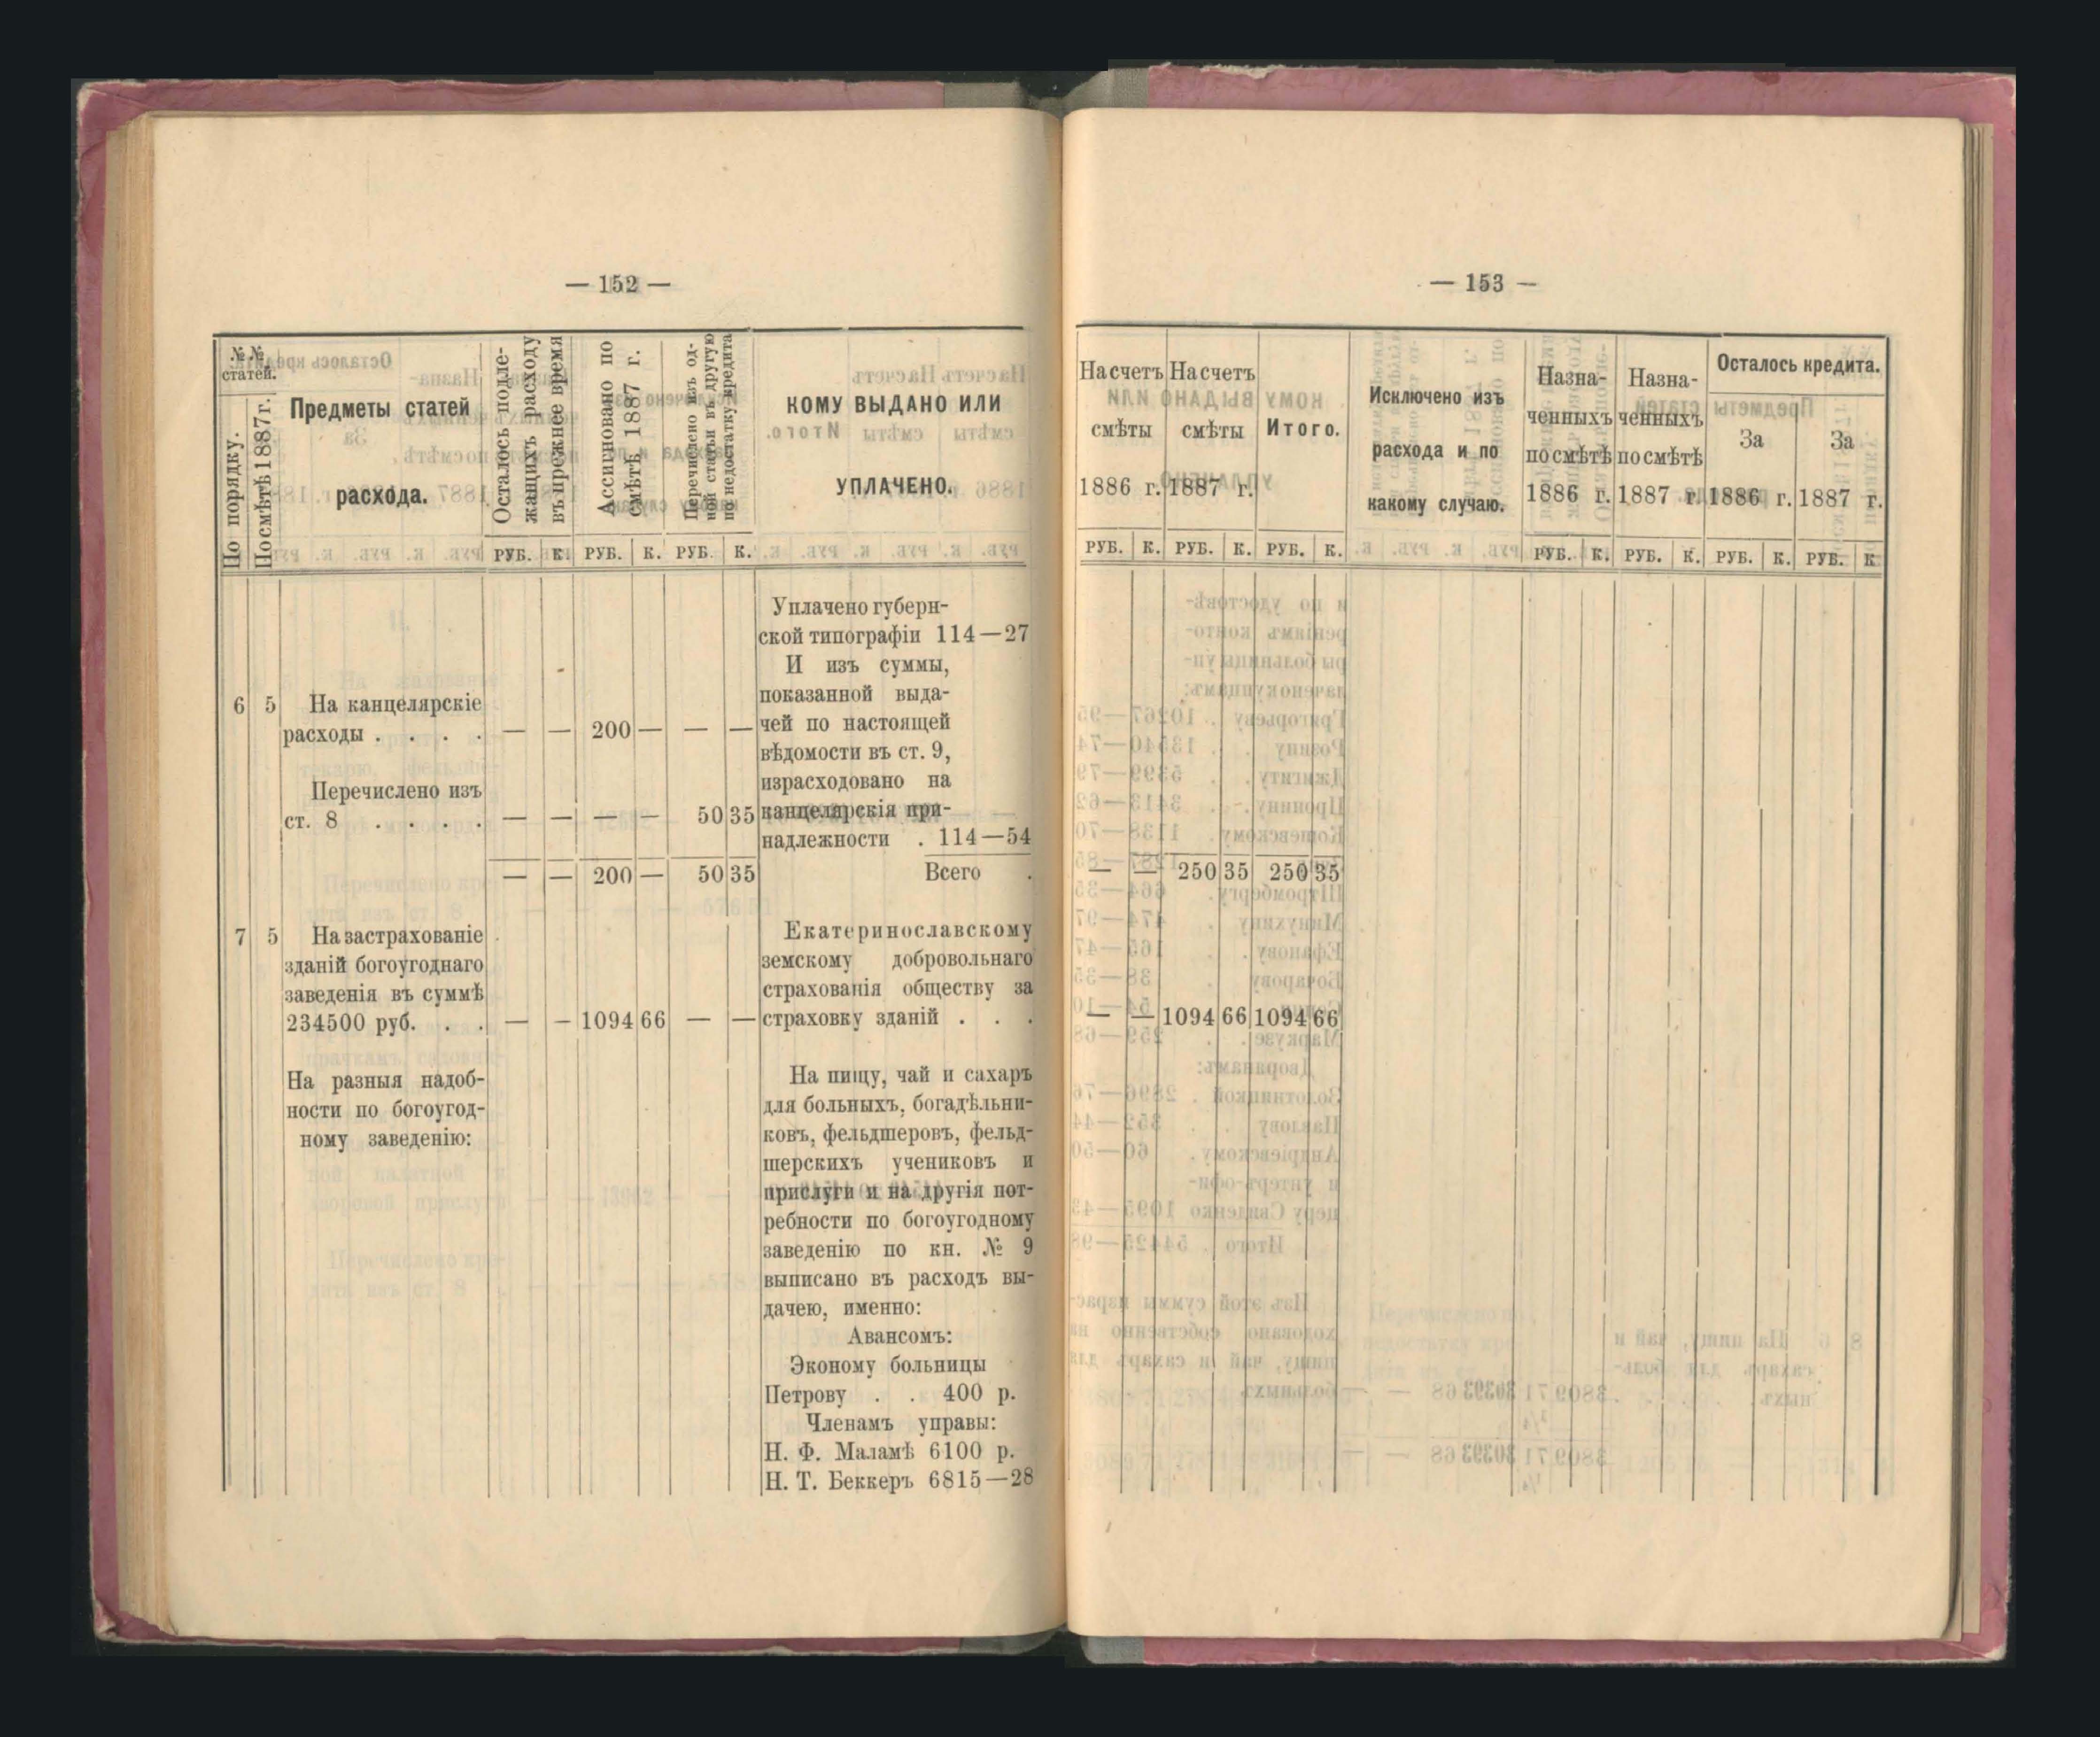 — 152 —
№№ статей.
По порядку.
По смѣтѣ 1887 г.
Предметы статей
расхода.
Осталось подле-
жащихъ расходу
въ прежнее время
Ассигновано по
смѣтѣ 1887 г.
Перечислено изъ од-
ной статьи въ другую
по недостатку кредита
КОМУ ВЫДАНО ИЛИ
УПЛАЧЕНО.
РУБ. К. РУБ. К. РУБ. К.
Уплачено губерн-
ской типографіи 114—27
И изъ суммы,
6 5 На канцелярскіе
показанной выда-
расходы . . . . — — 200 — — —
чей по настоящей
вѣдомости въ ст. 9,
Перечислено изъ
израсходовано на
ст. 8 . . . . — — — — 50 35
канцелярскія при-
надлежности . 114—54
— — 200 — 50 35 Всего .
7 5 На застрахованіе
зданій богоугоднаго
заведенія въ суммѣ
234500 руб. . . — — 1094 66 — —
Екатеринославскому
земскому добровольнаго
страхованія обществу за
страховку зданій . . .
На разныя надоб-
ности по богоугод-
ному заведенію:
На пищу, чай и сахаръ
для больныхъ, богадѣльни-
ковъ, фельдшеровъ, фельд-
шерскихъ учениковъ и
прислуги и на другія пот-
ребности по богоугодному
заведенію по кн. № 9
выписано въ расходъ вы-
дачею, именно:
Авансомъ:
Эконому больницы
Петрову . . 400 р.
Членамъ управы:
Н. Ф. Маламѣ 6100 р.
Н. Т. Беккеръ 6815—28
— 153 —
На счетъ
смѣты
1886 г.
На счетъ
смѣты
1887 г.
Итого.
Исключено изъ
расхода и по
какому случаю.
Назна-
ченныхъ
по смѣтѣ
1886 г.
Назна-
ченныхъ
по смѣтѣ
1887 г.
Осталось кредита.
За
1886 г.
За
1887 г.
РУБ. К. РУБ. К. РУБ. К. РУБ. К. РУБ. К. РУБ. К. РУБ. К
— — 250 35 250 35
— — 1094 66 1094 66